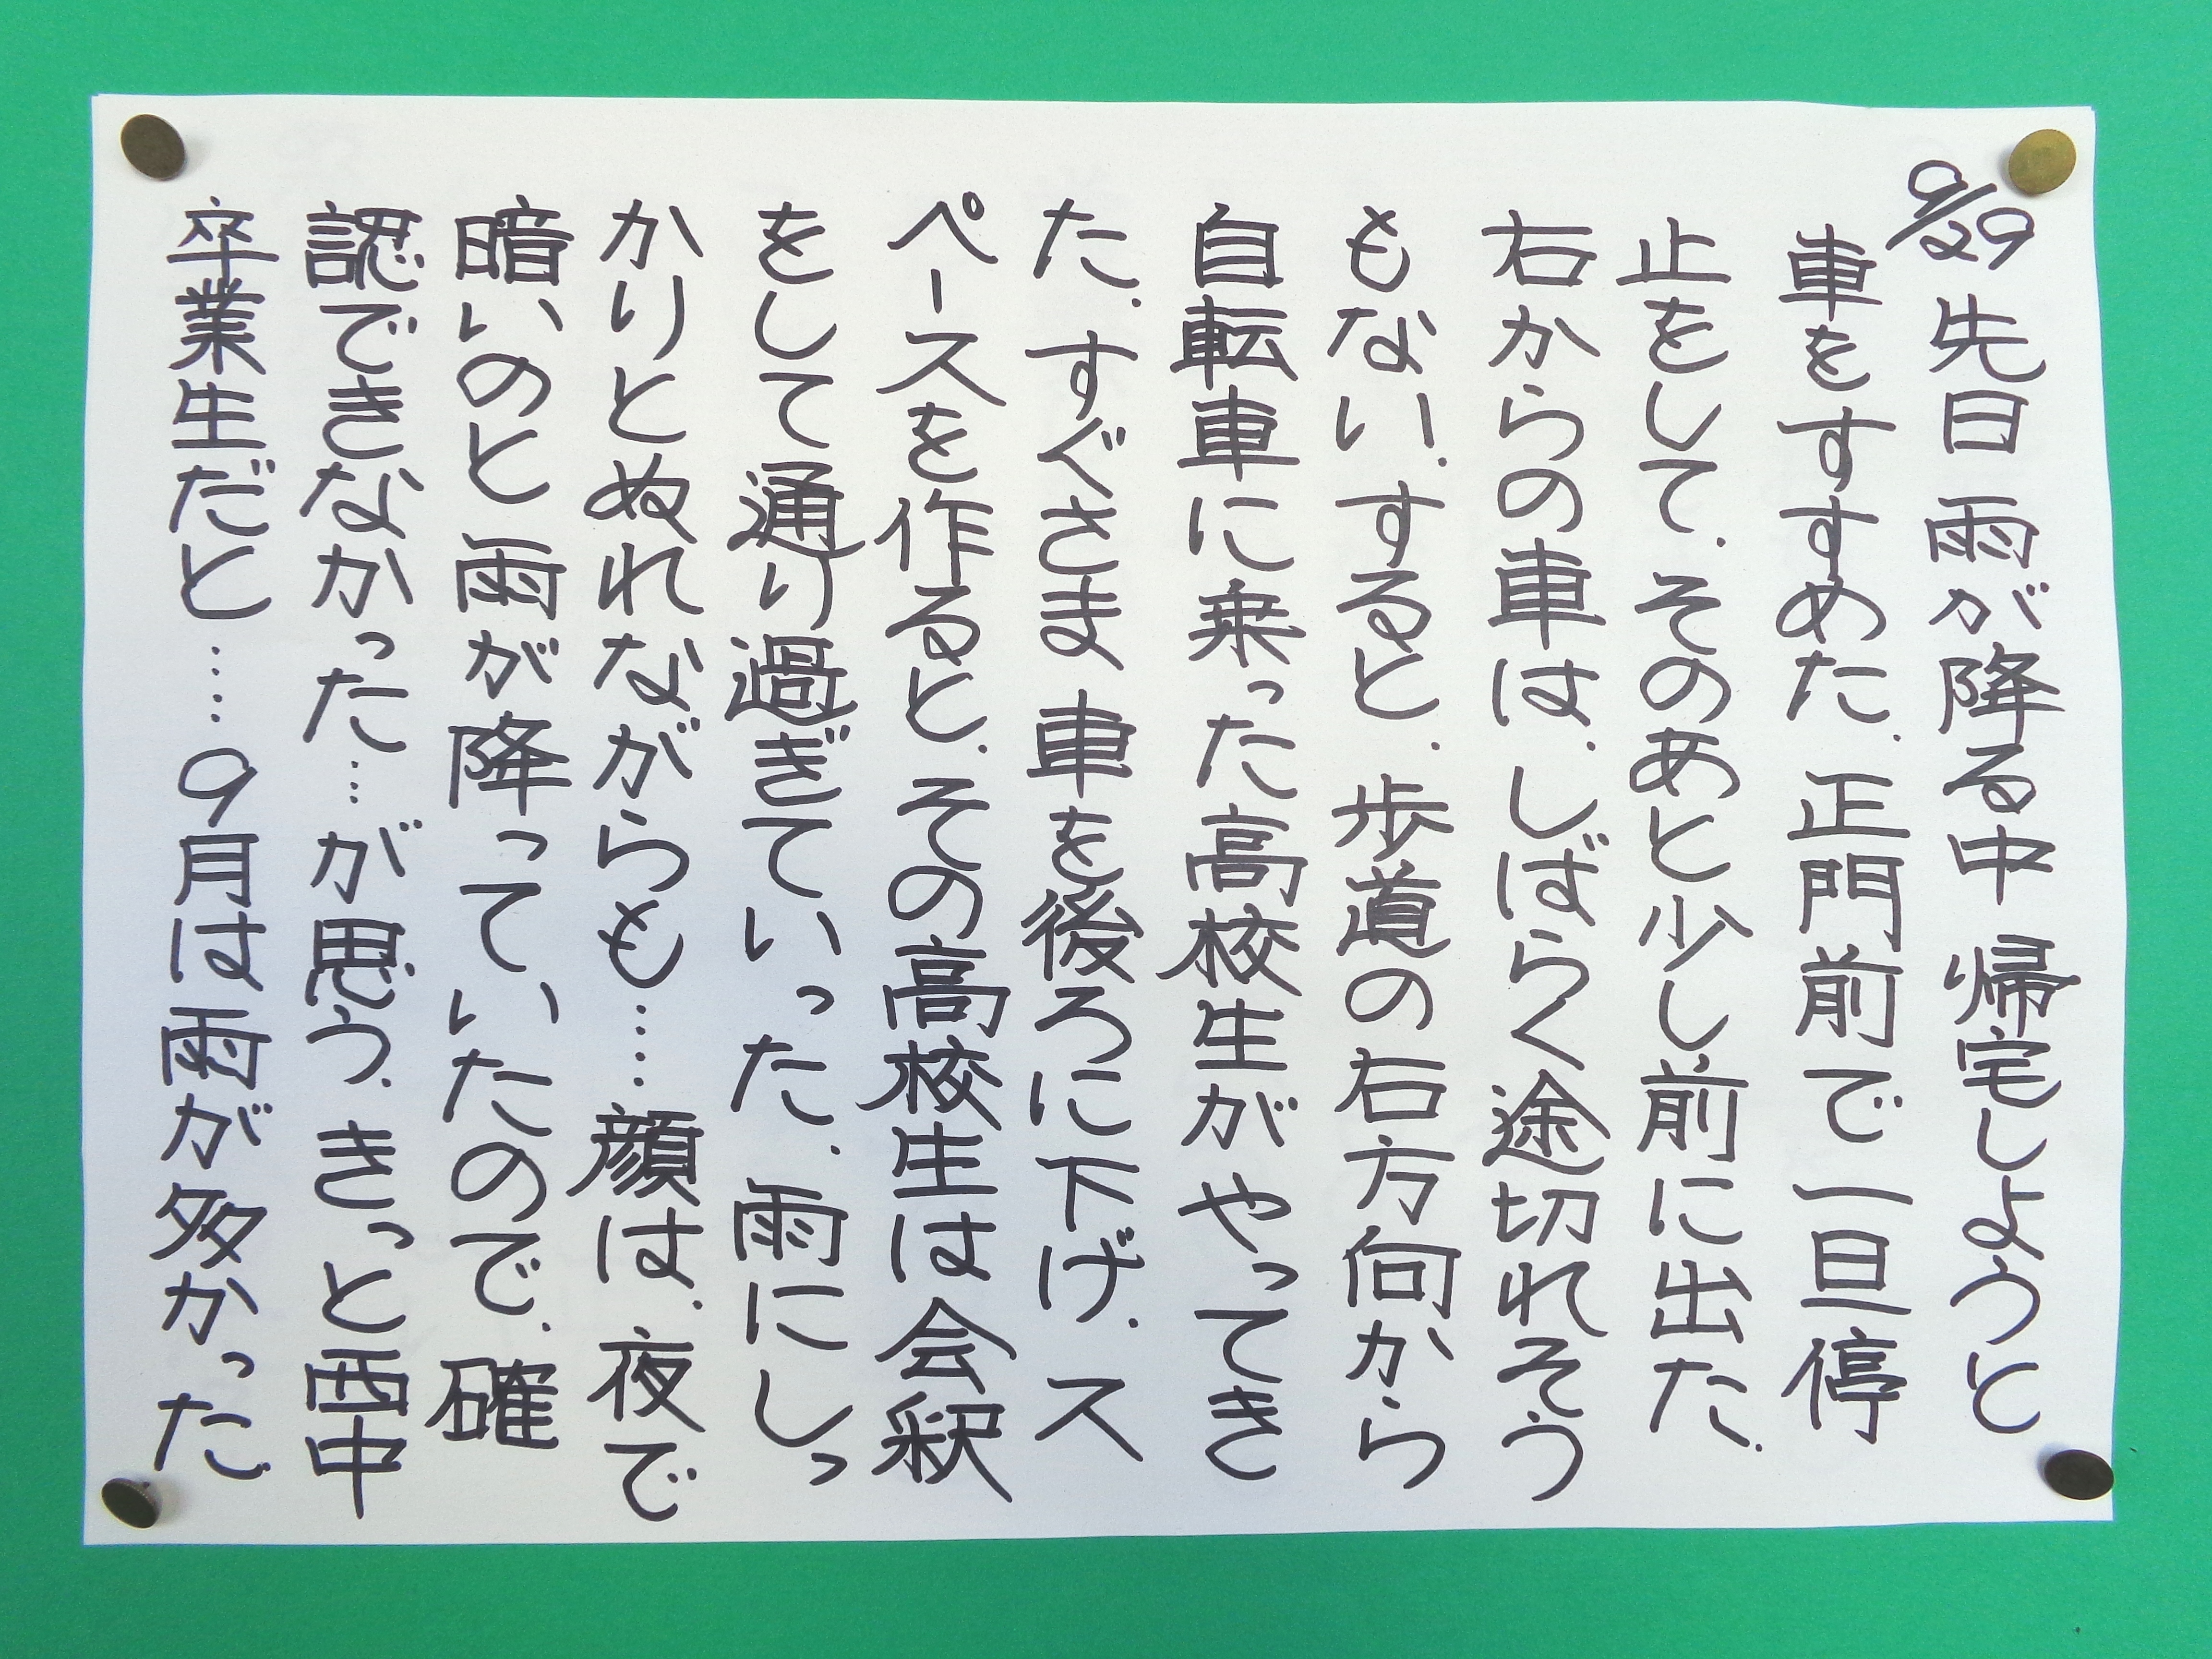 9/29 先日 雨が降る中 帰宅しようと
車をすすめた. 正門前で一旦停
止をして. そのあと少し前に出た.
右からの車は. しばらく途切れそう
もない. すると. 歩道の右方向から
自転車に乗った高校生がやってき
た. すぐさま 車を後ろに下げ. ス
ペースを作ると. その高校生は会釈
をして通り過ぎていった. 雨にしっ
かりとぬれながらも…… 顔は. 夜で
暗いのと雨が降っていたので. 確
認できなかった… が思う. きっと西中
卒業生だと…… 9月は雨が多かった.